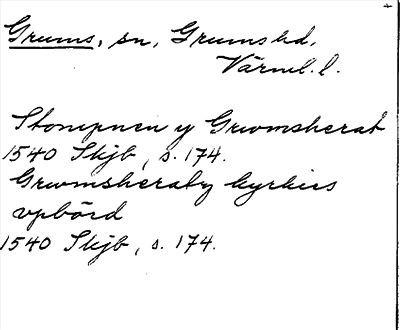 Grums, sn, Grums hd,
Värml. l.
Stompnen y Grwmsherat
1540 Skjb, s. 174.
Grwmsheratz kyrkies
vpbörd
1540 Skjb, s. 174.